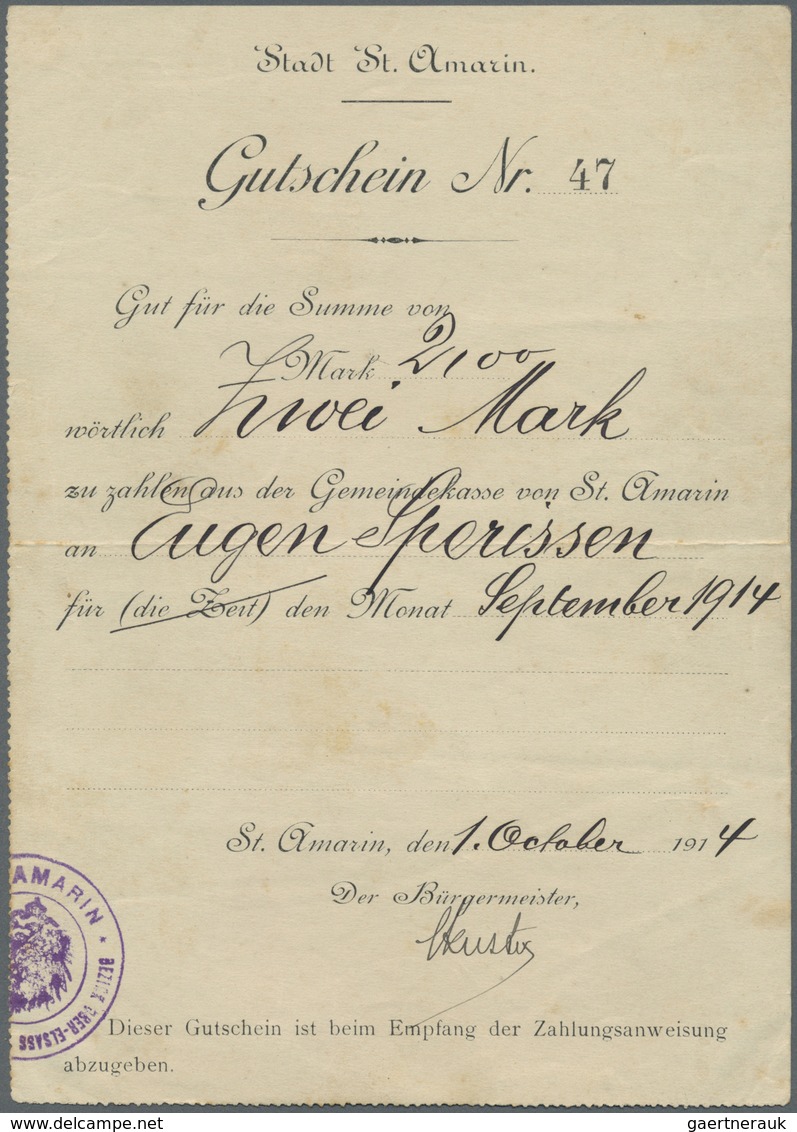 Stadt St. Amarin.
Gutschein Nr. 47
Gut für die Summe von
Mark 2,00
wörtlich Zwei Mark
zu zahlen aus der Gemeindekasse von St. Amarin
an Eugen Sperissen
für (die Zeit) den Monat September 1914
St. Amarin, den 1. October 1914
Der Bürgermeister,
AMARIN * BEZIRK OBER-ELSASS
Dieser Gutschein ist beim Empfang der Zahlungsanweisung
abzugeben.
www.delcampe.net
gaertnerauk